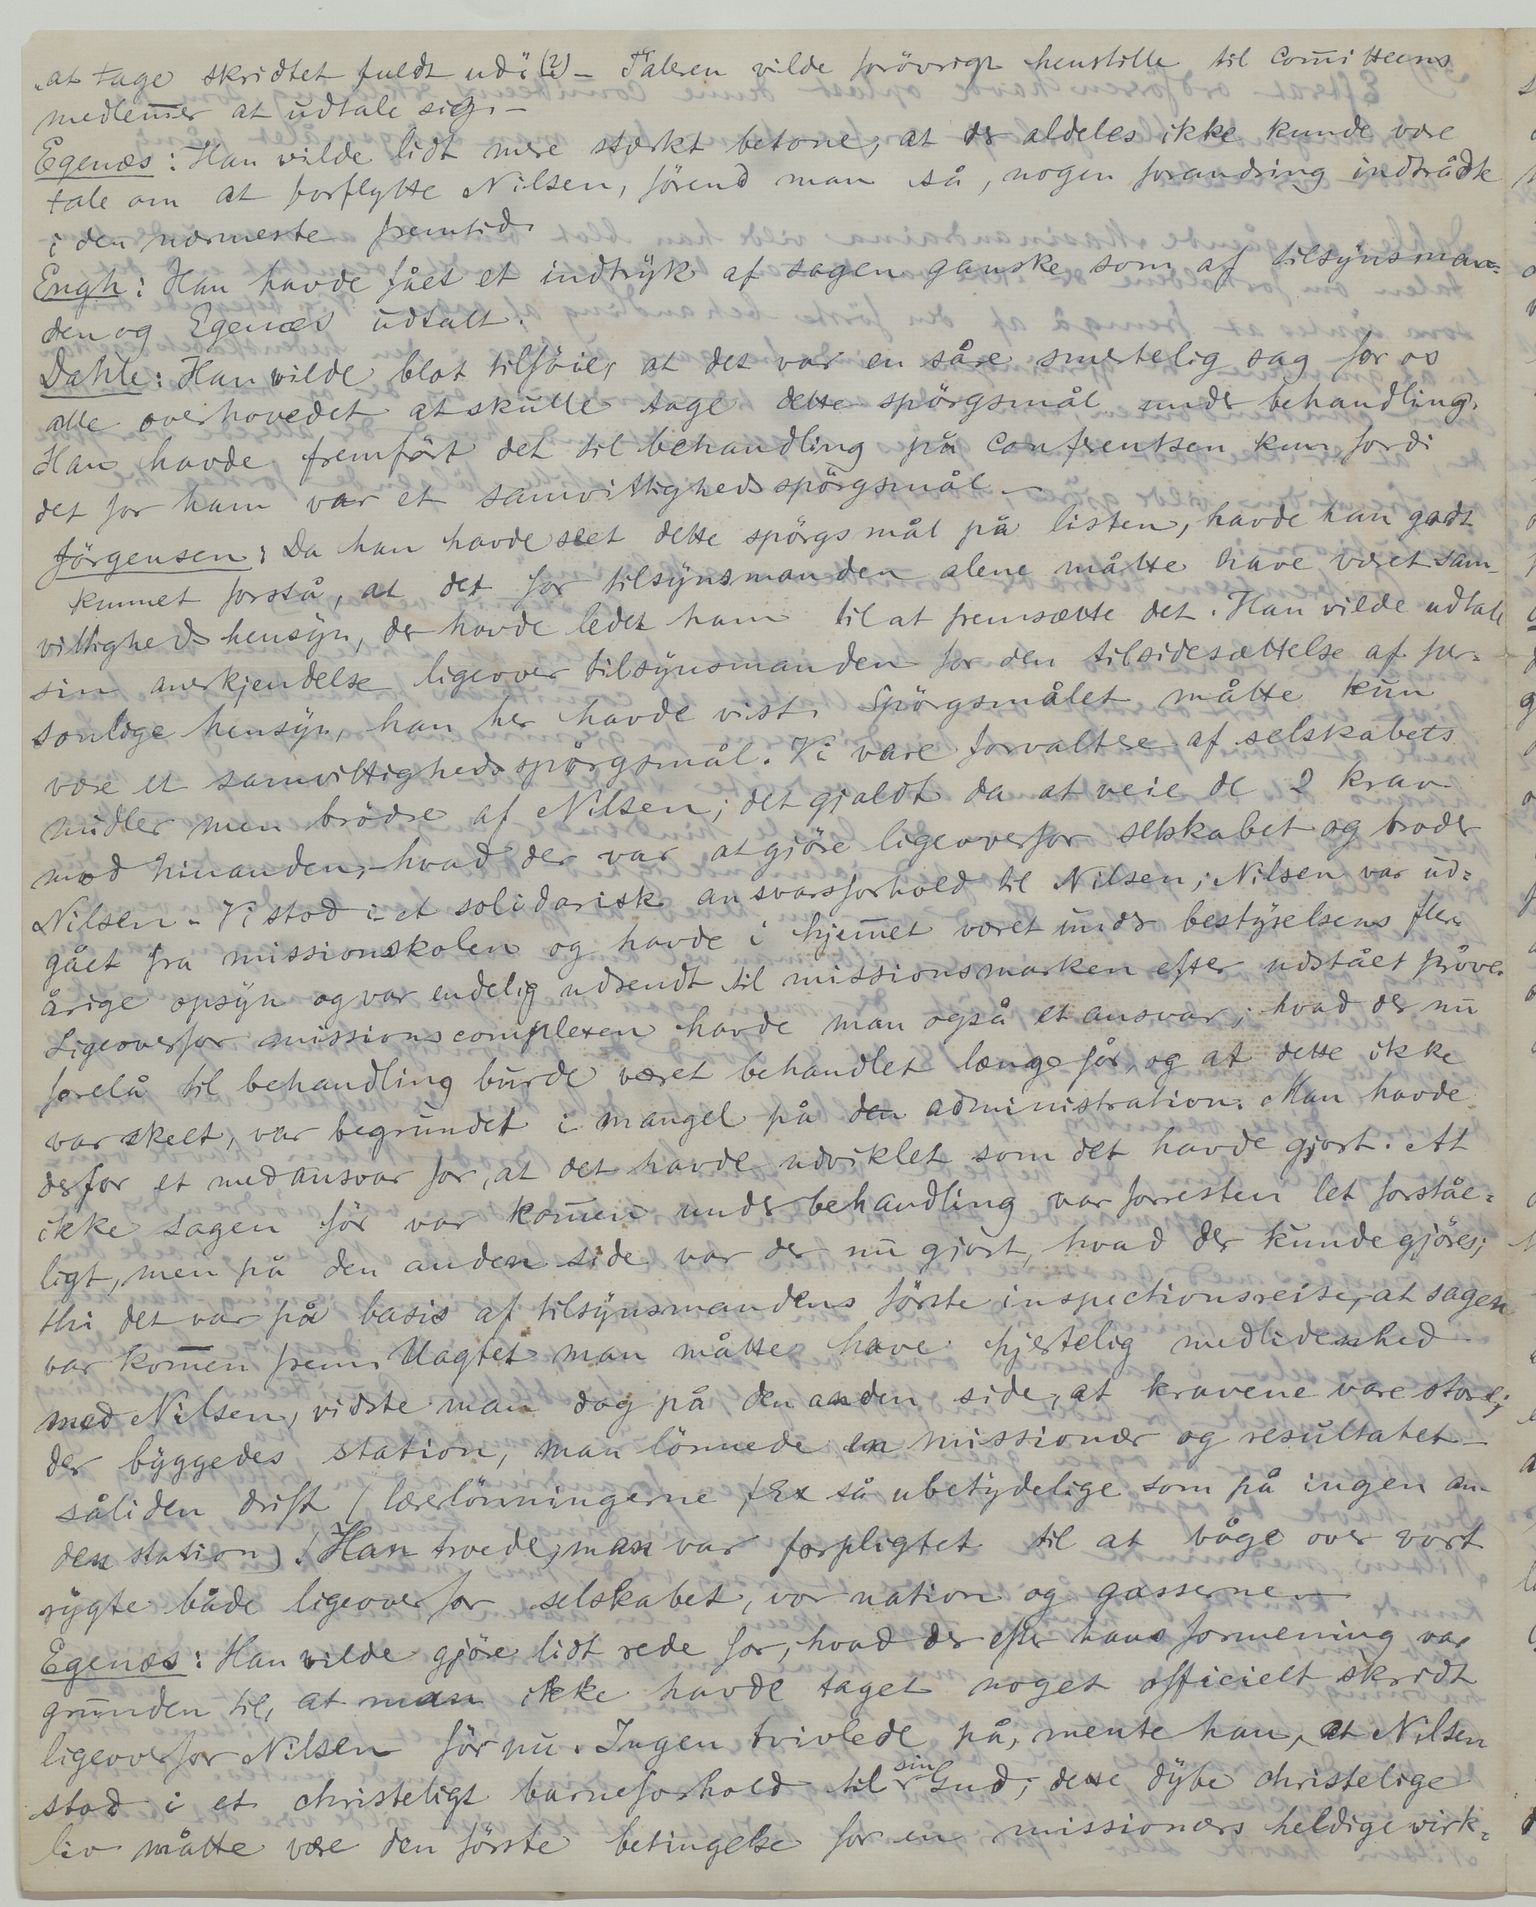 at tage skridtet fuldt ud i (2) – Taleren vilde forövrigt henstille til Comitteens
medlem̄er at udtale sig. –
Egenæs: Han vilde lidt mere stærkt betone, at der aldeles ikke kunde være
tale om at forflytte Nilsen, förend man så, nogen forandring indtrådte
i den nærmeste fremtid.
Engh: Han havde fået et indtryk af sagen ganske som af tilsynsman-
den og Egenæs udtalt.
Dahle: Han vilde blot tilföie, at det var en såre smertelig sag for os
alle overhovedet at skulle tage dette spörgsmål under behandling.
Han havde fremfört det til behandling på Confrentsen kun fordi
det for ham var et samvittighedsspörgsmål –
Jörgensen: Da han havde seet dette spörgsmål på listen, havde han godt
kunnet forstå, at det for tilsynsmanden alene måtte have været sam-
vittighedshensyn, der havde ledet ham til at fremsætte det. Han vilde udtale
sin anerkjendelse ligeover tilsynsmanden for den tilsidesættelse af per-
sonlige hensyn, han her havde vist. Spörgsmålet måtte kun
være et samvittighedsspörgsmål. Vi vare forvaltere af selskabets
midler men brödre af Nilsen; det gjaldt da at veie de 2 krav
mod hinanden, hvad der var at gjöre ligeoverfor selskabet og broder
Nilsen. Vi stod i et solidarisk ansvarsforhold til Nilsen; Nilsen var ud-
gået fra missionskolen og havde i hjem̄et været under bestyrelsens fler-
årige opsyn og var endelig udsendt til missionsmarken efter udstået pröve.
Ligeoverfor missionscomplexen havde man også et ansvar; hvad der nu
forelå til behandling burde været behandlet længe för, og at dette ikke
var skeet, var begrundet i mangel på den administration. Man havde
derfor et medansvar for, at det havde udviklet som det havde gjort. At
ikke sagen för var kom̄en under behandling var forresten let forståe-
ligt, men på den anden side var der nu gjort, hvad der kunde gjöres;
thi det var på basis af tilsynsmandens förste inspectionsreise, at sagen
var kom̄en frem. Uagtet man måtte have hjertelig medlidenhed
med Nilsen, vidste man dog på den anden side, at kravene vare store;
der byggedes station, man lönnede en missionær og resultatet –
såliden drift (lærerlönningerne f.Ex så ubetydelige som på ingen an-
den station). Han troede, man var forpligtet til at våge over vort
rygte både ligeoverfor selskabet, vor nation og gasserne –
Egenæs: Han vilde gjöre lidt rede for, hvad der efter hans formening var
grunden til, at man ikke havde taget noget officielt skridt
ligeoverfor Nilsen för nu. Ingen tvivlede på, mente han, at Nilsen
stod i et christeligt barneforhold til sin Gud; dette dybe christelige
liv måtte være den förste betingelse for en missionærs heldige virk-